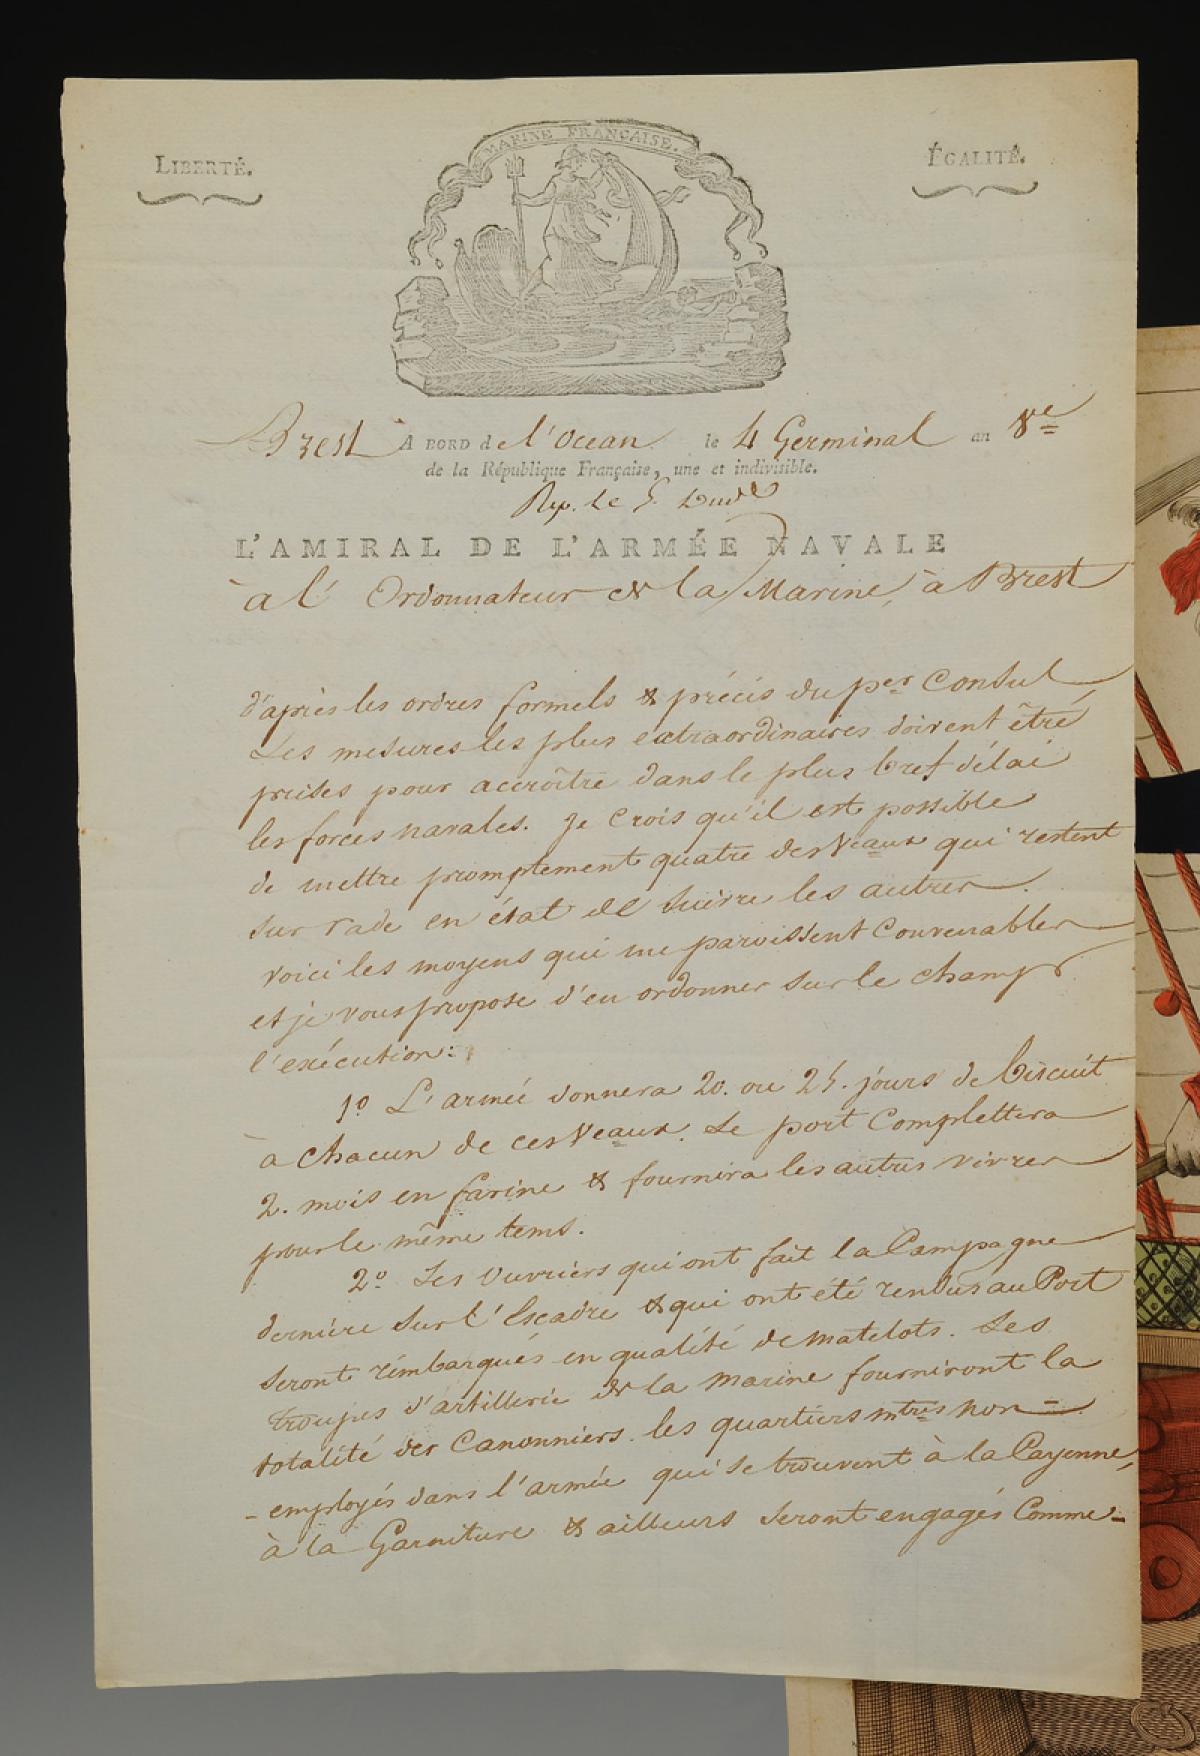 MARINE FRANÇAISE.
LIBERTÉ.
ÉGALITÉ.
Brest A BORD de l'Ocean le 4 Germinal an 8e
de la République Française, une et indivisible.
Rep. le 5. dud.
L'AMIRAL DE L'ARMÉE NAVALE
à l'Ordonnateur de la Marine, à Brest
d'après les ordres formels & précis du per Consul
Les mesures les plus extraordinaires doivent être
prises pour accroître dans le plus bref délai
les forces navales. Je Crois qu'il est possible
de mettre promptement quatre des Veaux qui restent
sur rade en état de suivre les autres.
Voici les moyens qui me paroissent Convenables
et je vous propose d'en ordonner sur le champ
l'exécution:
1º L'armée donnera 20. ou 25. jours de biscuit
à chacun de ces Veaux. Le port Complettera
2. mois en farine & fournira les autres vivres
pour le même tems.
2º Les Ouvriers qui ont fait la Campagne
dernière sur l'Escadre & qui ont été rendus au Port
seront rembarqués en qualité de matelots. Les
troupes d'artillerie de la marine fourniront la
totalité des Canonniers. les quartiers mtres non-
-employés dans l'armée qui se trouvent à la Cayenne,
à la Garniture & ailleurs seront engagés Comme-